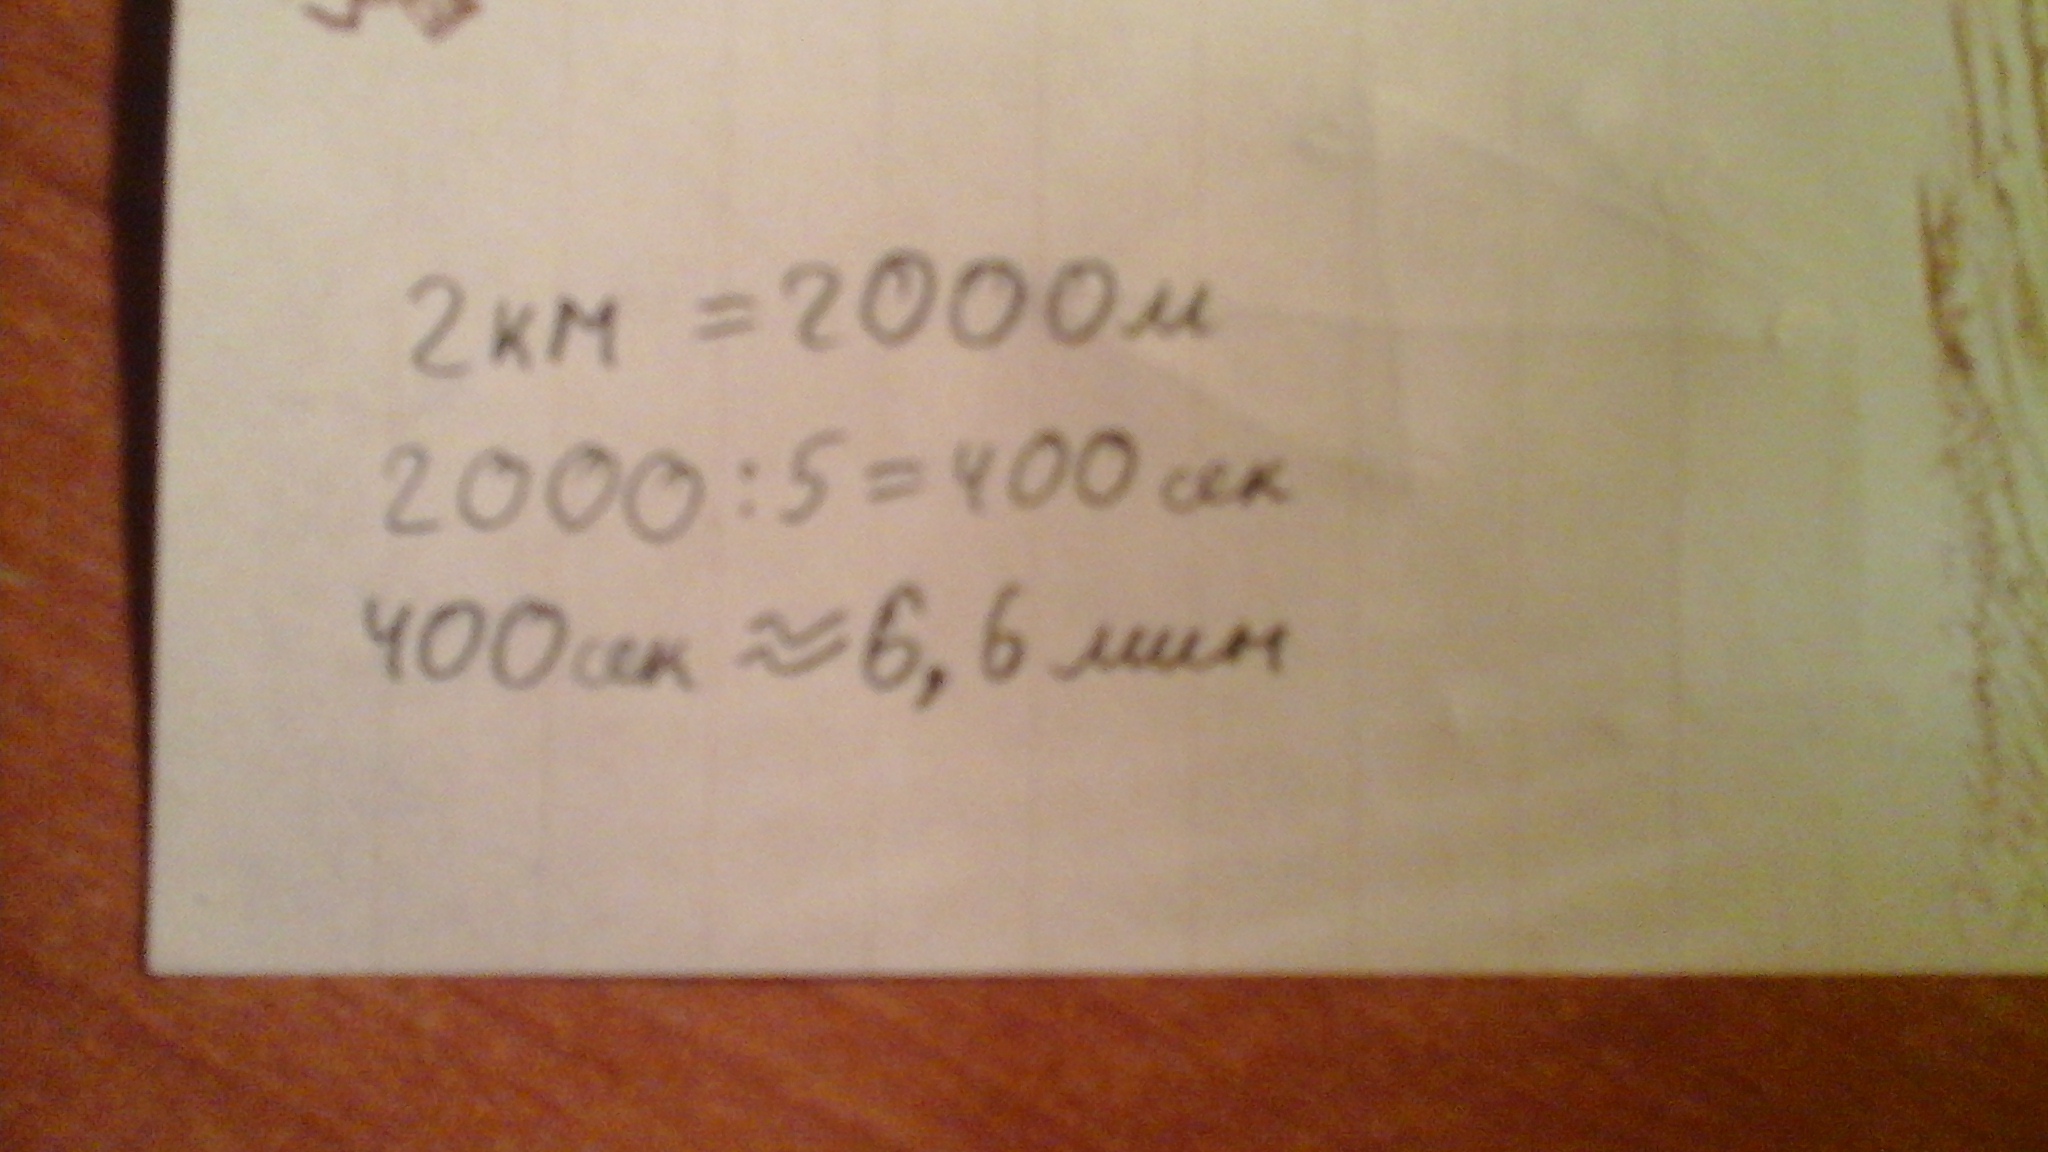 2км = 2000м
2000 : 5 = 400 сек
400сек ≈ 6,6 мин